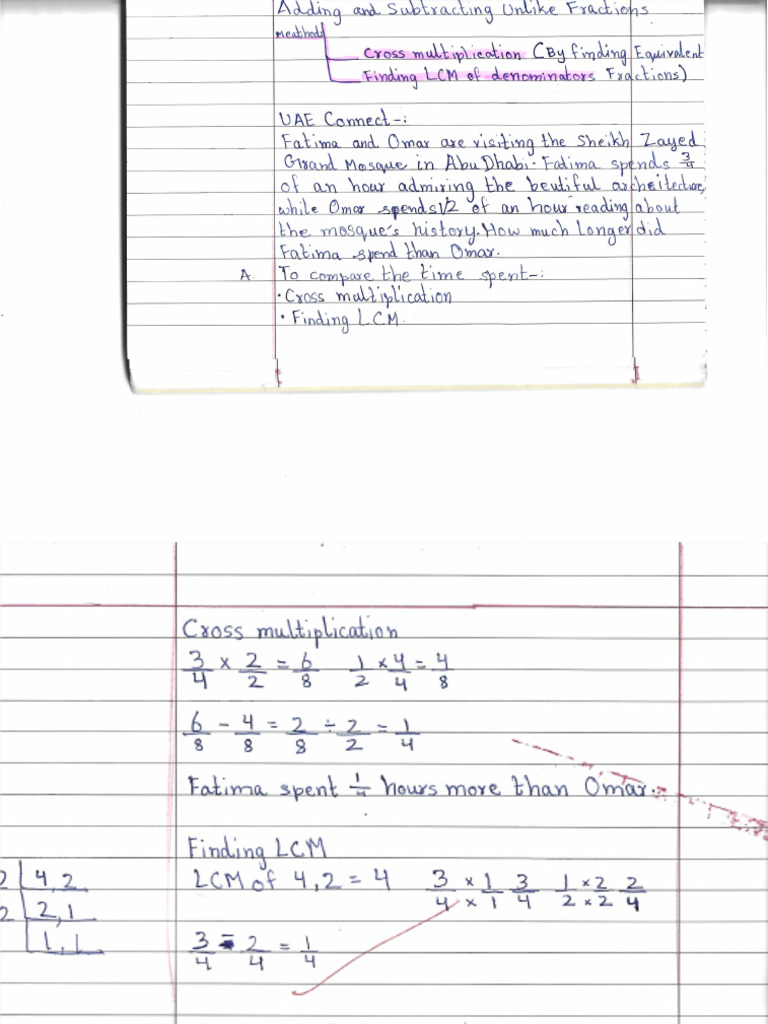 Adding and Subtracting Unlike Fractions
Meathods
Cross multiplication (By finding Equivalent
Finding LCM of denominators Fractions)
UAE Connect-:
Fatima and Omar are visiting the Sheikh Zayed
Grand Mosque in Abu Dhabi. Fatima spends 3/4
of an hour admiring the beutiful archeitecture,
while Omar spends 1/2 of an hour reading about
the mosque's history. How much longer did
Fatima spend than Omar.
A. To compare the time spent-:
• Cross multiplication
• Finding LCM.
Cross multiplication
3/4 × 2/2 = 6/8 1/2 × 4/4 = 4/8
6/8 - 4/8 = 2/8 ÷ 2/2 = 1/4
Fatima spent 1/4 hours more than Omar.
Finding LCM
2 | 4, 2 LCM of 4, 2 = 4 3/4 × 1/× 1 3/4 1/2 × 2/× 2 2/4
2 | 2, 1
| 1, 1 3/4 - 2/4 = 1/4